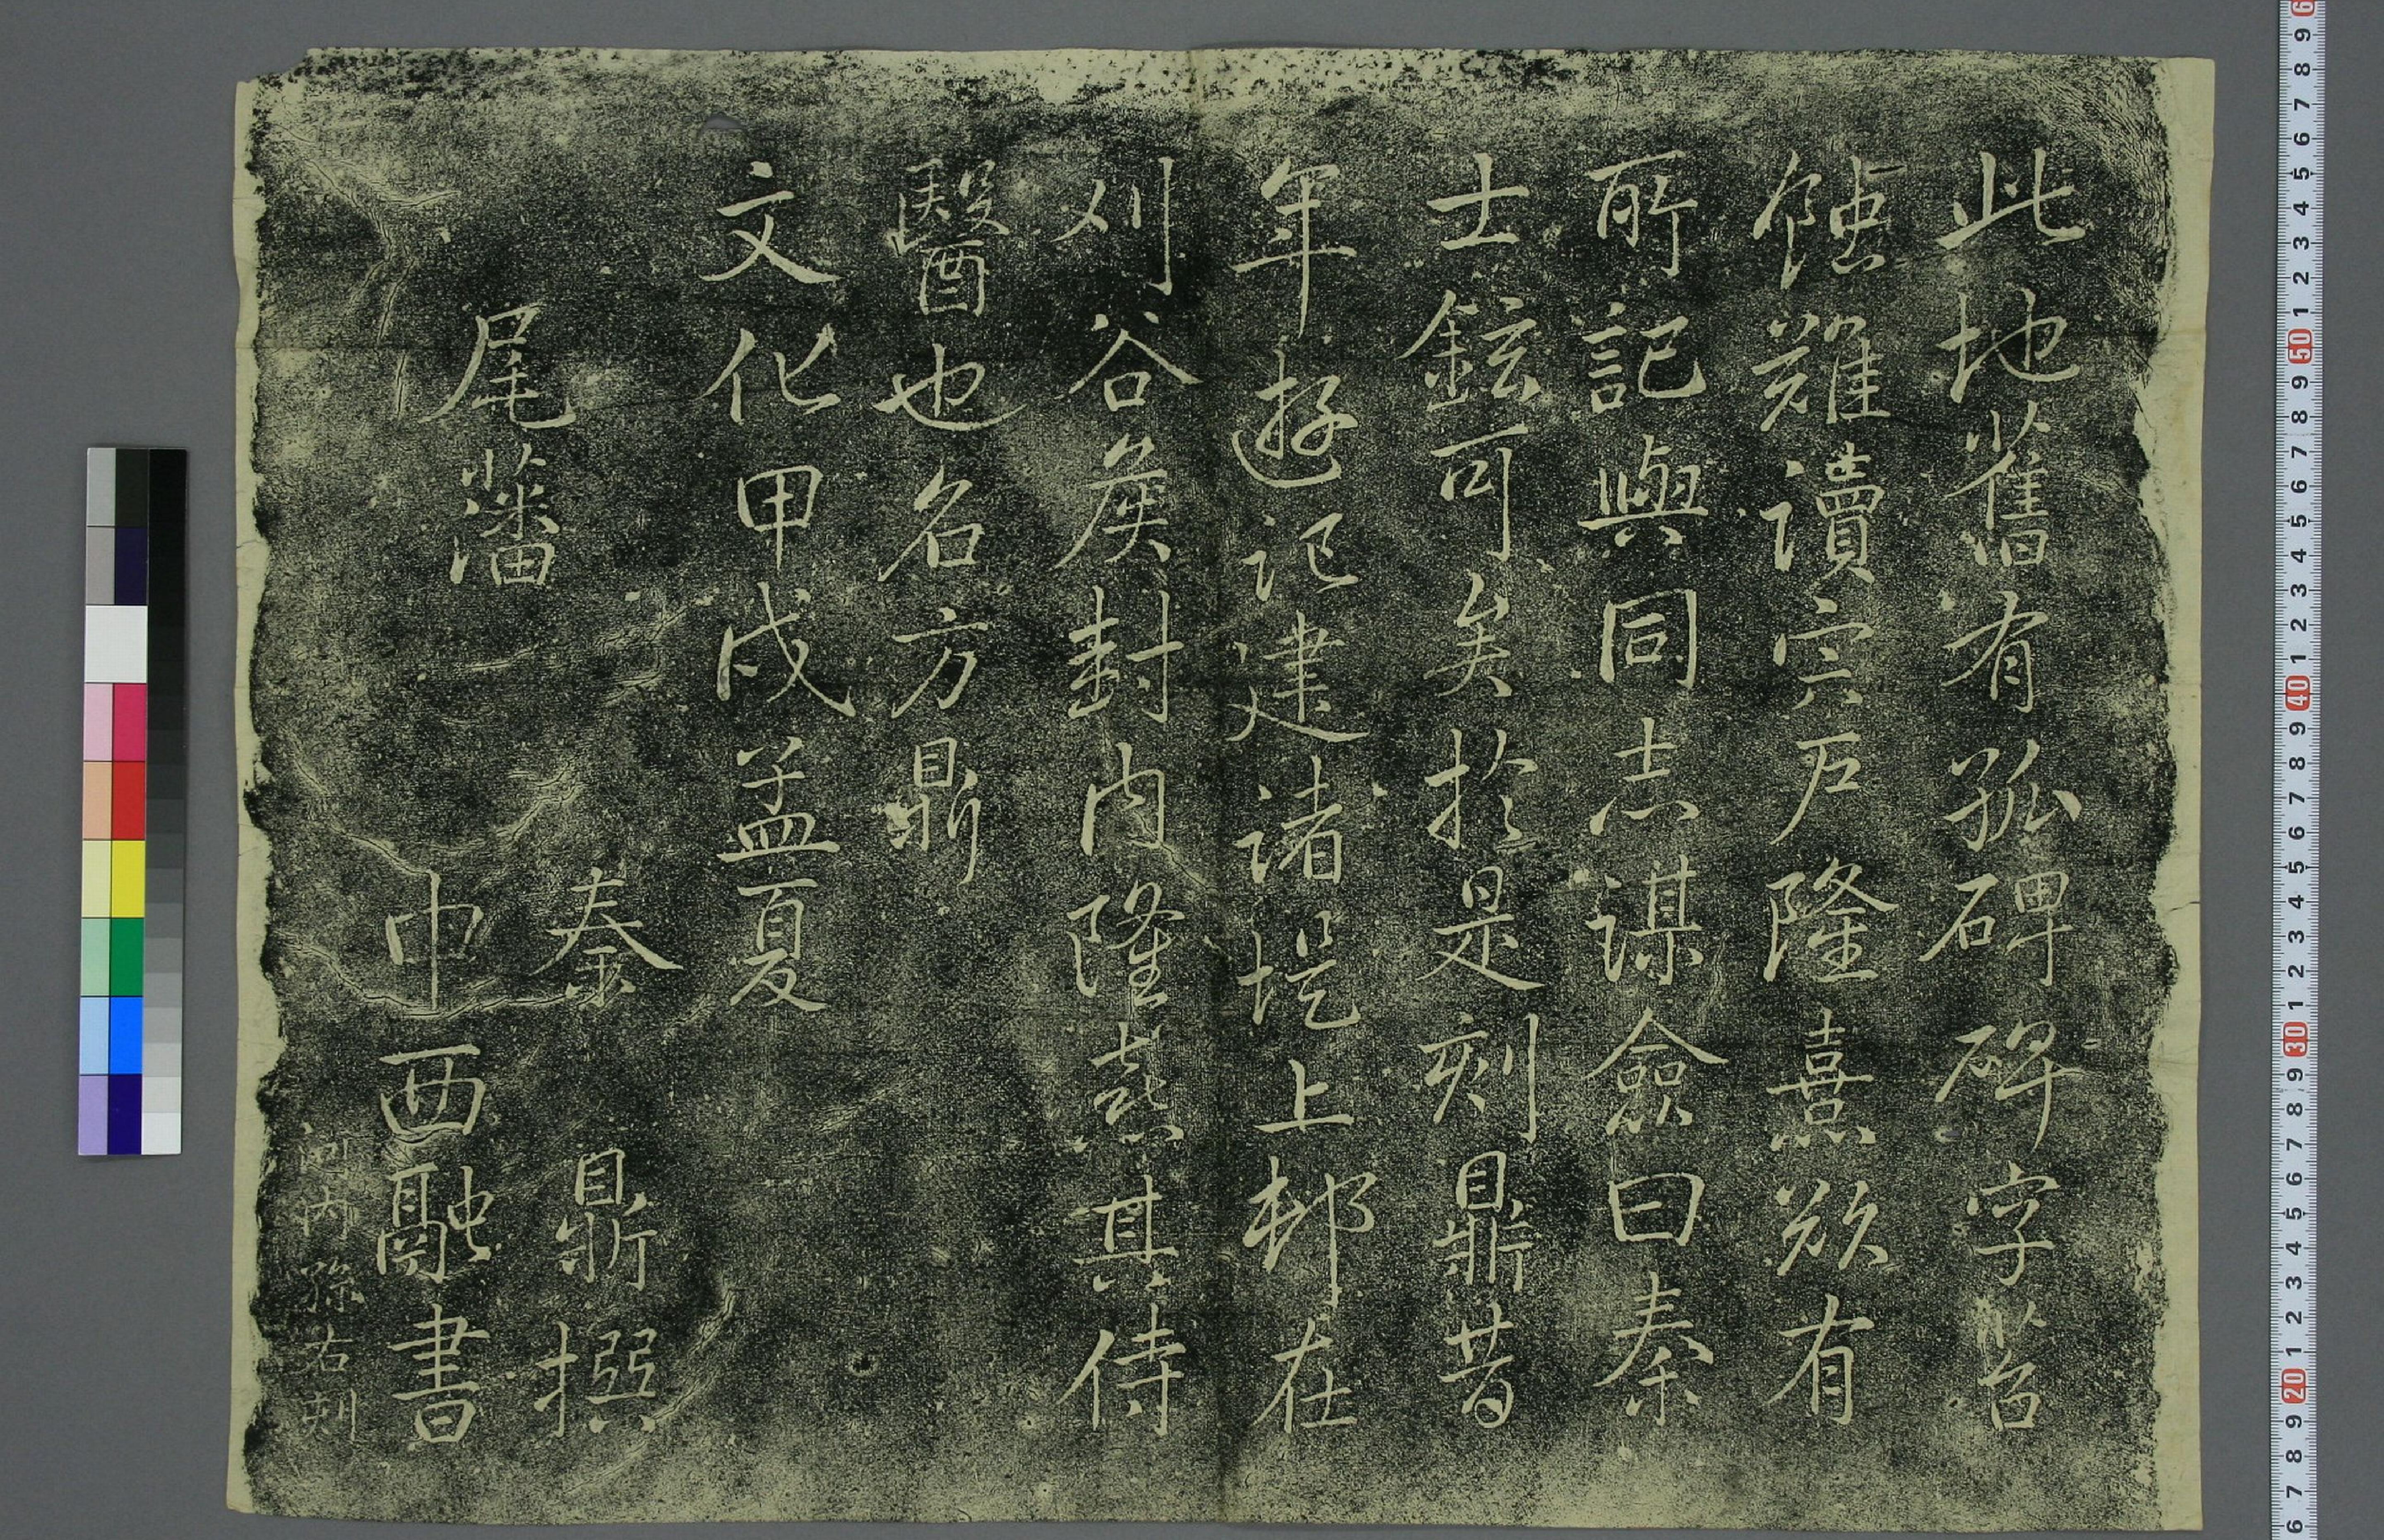 此地舊有孤碑碑字苔
蝕難讀宍戸隆熹欲有
所記與同志謀僉曰秦
士鉉可矣於是刻鼎昔
年遊記建諸堤上邨在
刈谷侯封内隆熹其侍
醫也名方鼎
文化甲戌孟夏
尾藩
秦鼎撰
中西融書
河内孫右刻